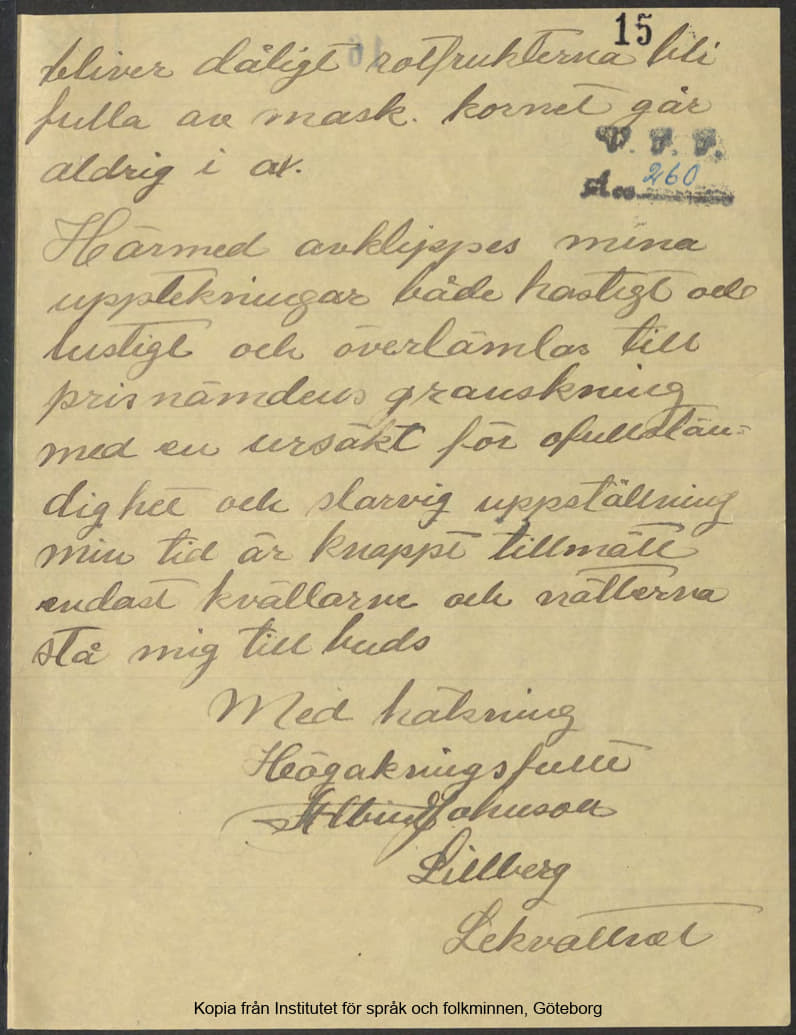 15
bliver dåligt rotfrukterna bli
fulla av mask. kornet går
aldrig i ax.
V. F. F.
Acc. 260
Härmed avklippes mina
upptekningar både hastigt och
lustigt och överlämlas till
prisnämdens granskning
med en ursäkt för ofullstän=
dighet och slarvig uppställning
min tid är knappt tillmätt
endast kvällarne och nätterna
stå mig till buds
Med hälsning
Högakningsfullt
Albin Johnson
Lillberg
Lekvattnet
Kopia från Institutet för språk och folkminnen, Göteborg